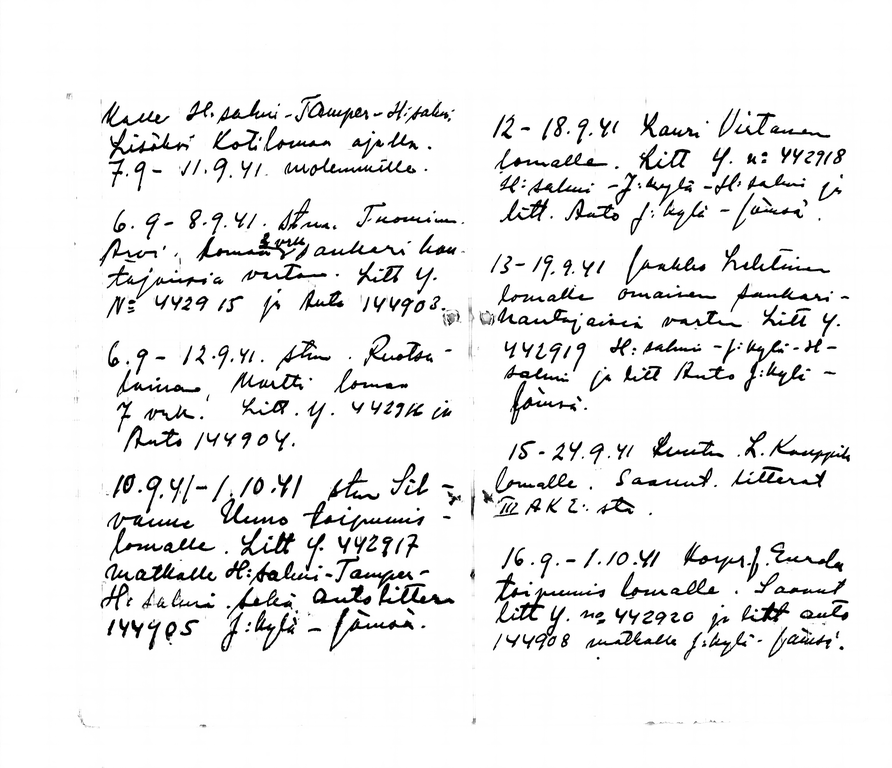 Kalle H:salmi-Tamper-H:salmi
Lisäksi Kotiloman ajalla.
7.9 - 11.9.41. molemmille.
6.9 - 8.9.41. stm. Tuominen
Arvi. Lomaa 2 vrk sankarihau-
tajaisia varten. Litt Y.
No 442915 ja Auto 144903.
6.9 - 12.9.41. stm. Ruotsa-
lainen, Martti lomaa
7 vrk. Litt. Y. 442916 ja
Auto 144904.
10.9.41 - 1.10.41 stm Sil-
vanne Uuno toipumis-
lomalle. Litt Y. 442917
matkalle H:salmi-Tamper-
H:salmi. sekä autolittera
144905 J:kylä - Jämsä.
12 - 18.9.41 Lauri Virtanen
lomalle. Litt Y. no 442918
H:salmi - J:kylä - H:salmi ja
litt. Auto J:kylä - Jämsä.
13 - 19.9.41 Jaakko Lehtinen
lomalle omaisen sankari-
hautajaisia varten Litt Y.
442919 H:salmi - J:kylä - H-
salmi ja litt Auto J:kylä -
Jämsä.
15 - 24.9.41 L. Kauppila
lomalle. Saanut litterat
III AKE:sta.
16.9. - 1.10.41 Korpr. J. Eerola
toipumis lomalle. Saanut
litt Y. no 442920 ja litt auto
144908 matkalle J:kylä - Jämsä.